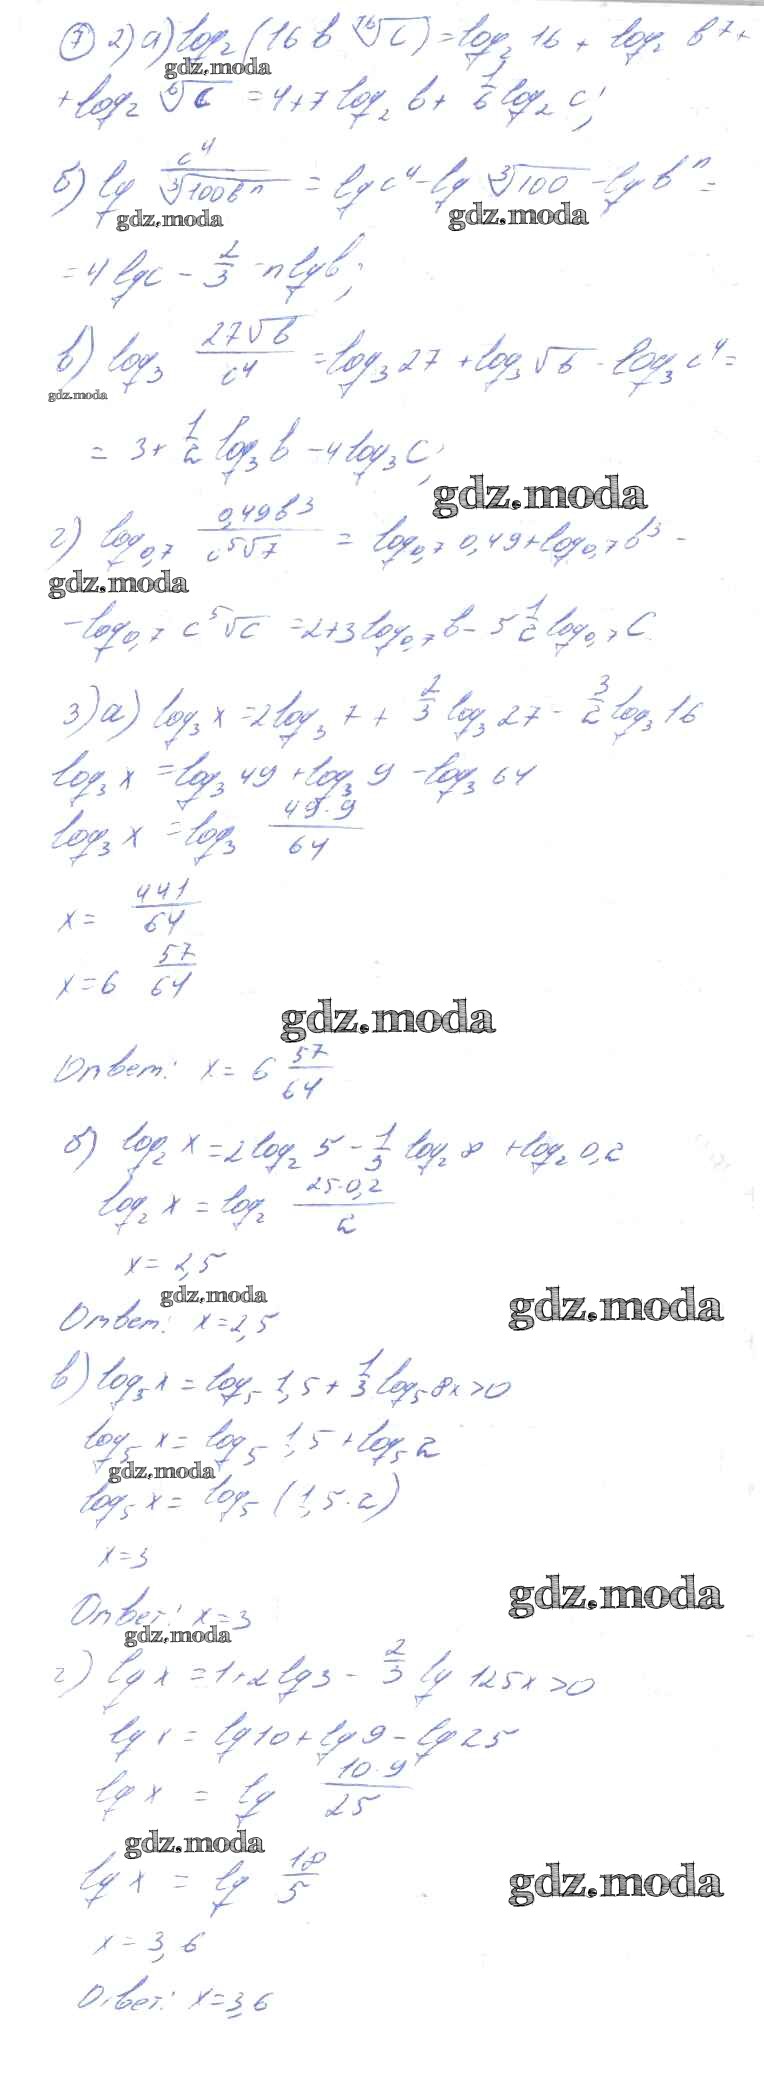 ⑦ 2) а) log₂(16 b⁷ ⁶√c) = log₂ 16 + log₂ b⁷ +
gdz.moda
+ log₂ ⁶√c = 4 + 7 log₂ b + 1/6 log₂ c;
б) lg c⁴/(³√100 bⁿ) = lg c⁴ - lg ³√100 - lg bⁿ =
gdz.moda gdz.moda
= 4 lg c - 2/3 - n lg b;
в) log₃ 27√b/c⁴ = log₃ 27 + log₃ √b - log₃ c⁴ =
gdz.moda
= 3 + 1/2 log₃ b - 4 log₃ c;
gdz.moda
г) log₀,₇ 0,49b³/(c⁵√7) = log₀,₇ 0,49 + log₀,₇ b³ -
gdz.moda
- log₀,₇ c⁵√c = 2 + 3 log₀,₇ b - 5 1/2 log₀,₇ c
3) а) log₃ x = 2 log₃ 7 + 2/3 log₃ 27 - 3/2 log₃ 16
log₃ x = log₃ 49 + log₃ 9 - log₃ 64
log₃ x = log₃ 49·9/64
x = 441/64
x = 6 57/64
gdz.moda
Ответ: x = 6 57/64
б) log₂ x = 2 log₂ 5 - 1/3 log₂ 8 + log₂ 0,2
log₂ x = log₂ 25·0,2/2
x = 2,5
gdz.moda gdz.moda
Ответ: x = 2,5
в) log₅ x = log₅ 1,5 + 1/3 log₅ 8 x>0
log₅ x = log₅ 1,5 + log₅ 2
gdz.moda
log₅ x = log₅ (1,5·2)
x = 3
gdz.moda
Ответ: x = 3
gdz.moda
г) lg x = 1 + 2 lg 3 - 2/3 lg 125 x>0
lg x = lg 10 + lg 9 - lg 25
lg x = lg 10·9/25
gdz.moda
lg x = lg 18/5
gdz.moda
x = 3,6
Ответ: x = 3,6